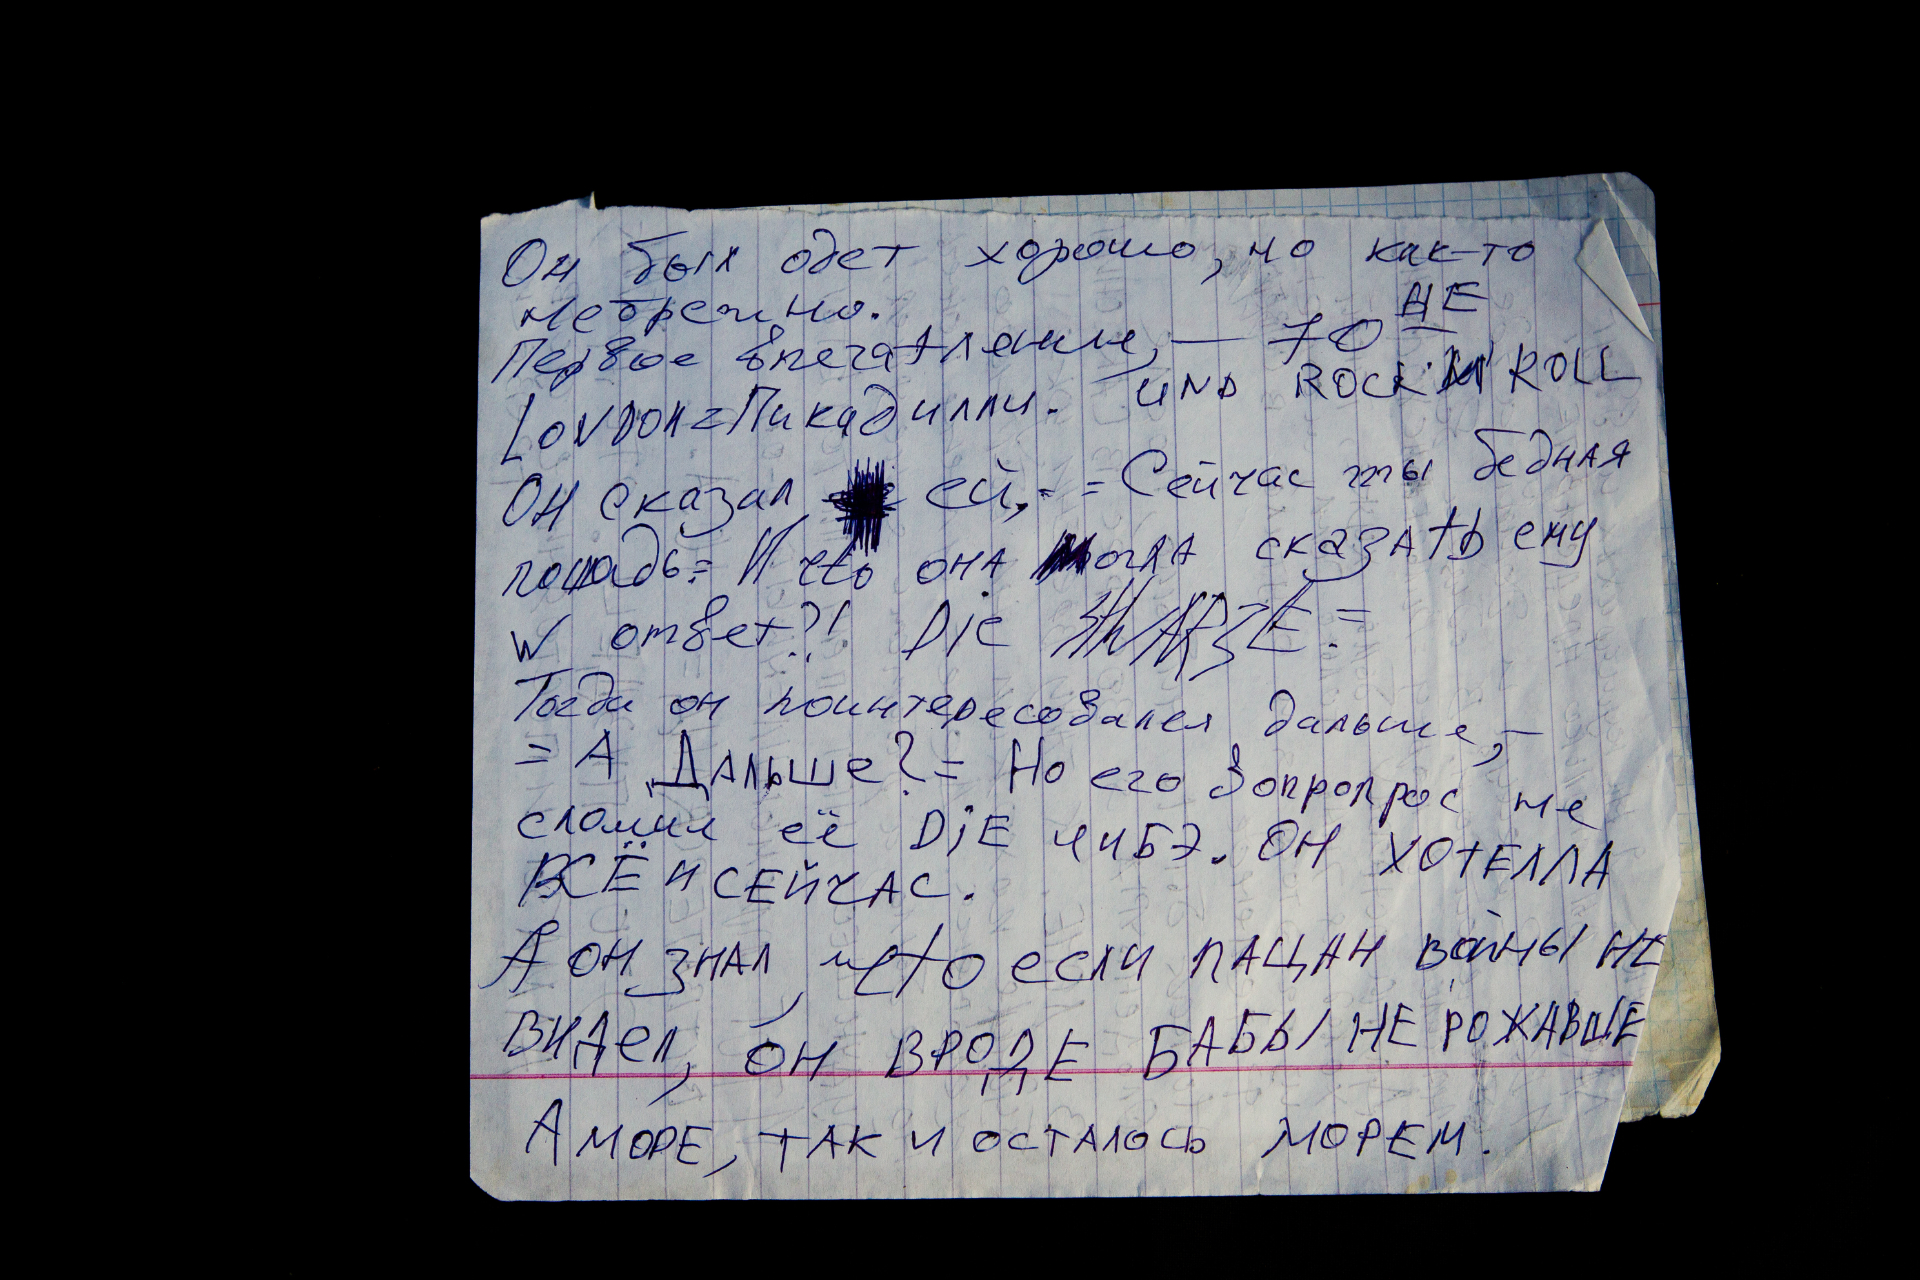 Он был одет хорошо, но как-то
небрежно.
Первое впечатление, — 70 ДЕ
LONDON=Пикадилли. UND ROCK'N' ROLL
Он сказал ей, - =Сейчас ты бедная
лошадь.= И что она могла сказать ему
W ответ?! DiE ШWARZE.=
Тогда он поинтересовался дальше, –
= А Дальше?= Но его вопропрос не
сломил её DiE ЧИБЭ. ОН ХОТЕЛЛА
ВСЁ И СЕЙЧАС.
А ОН ЗНАЛ, что если ПАЦАН ВОЙНЫ НЕ
ВИДел, ОН ВРОДЕ БАБЫ НЕ РОЖАВШЕ
А МОРЕ, ТАК И ОСТАЛОСЬ МОРЕМ.